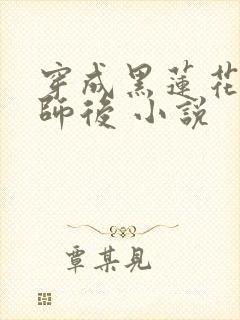 穿成黑蓮花
師後 小說
覃某見